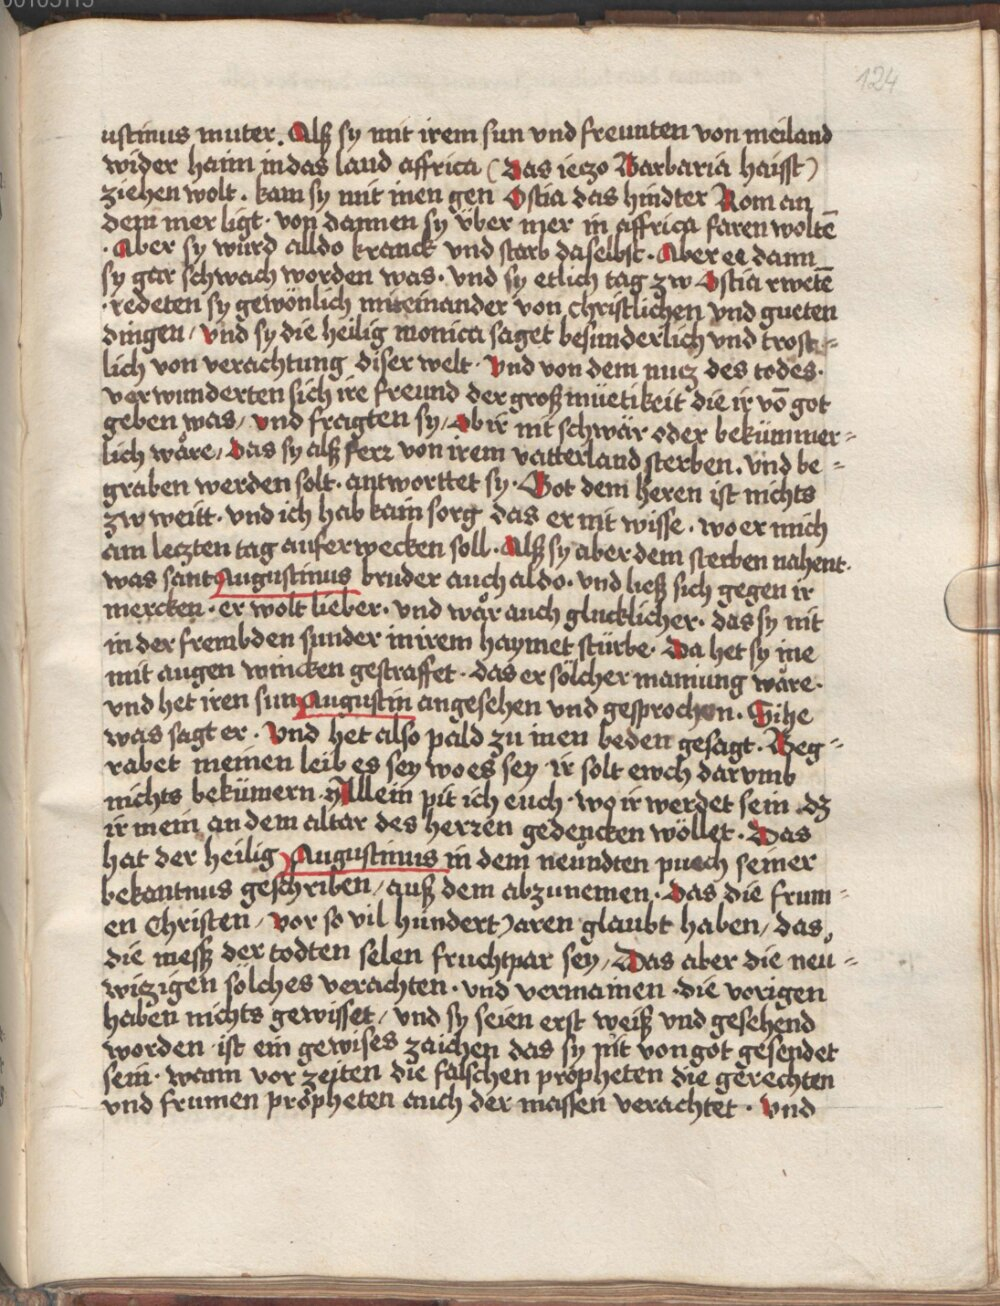 00105115
124
ustinus muter. Alß sy mit irem sun vnd freunten von meiland
wider haim in das land affrica (Das ieczo Barbaria haisst)
ziehen wolt. kam sy mit inen gen Ostia das hindter Rom an
dem mer ligt. von dannen sy über mer in affrica faren woltē
. Aber sy würd alldo kranck vnd starb daselbst. Aber ee dann
sy gar schwach worden was. vnd sy etlich tag zw Ostia rwetē
. redeten sy gewönlich miteinander von christlichen vnd gueten
dingen / vnd sy die heilig monica saget besunderlich vnd trost=
lich von verachtung diser welt. Vnd von dem nucz des todes.
verwunderten sich ire freund der großmüetikeit die ir vō got
geben was / vnd fragten sy / Ob ir nit schwär oder bekümmer=
lich wåre / Das sy alß ferr von irem vatterland sterben. vnd be=
graben werden solt. antworttet sy. Got dem heren ist nichts
zw weitt. vnd ich hab kain sorg das er nit wisse. wo er mich
am leczten tag auferwecken soll. Alß sy aber dem sterben nahent.
was sant Augustinus bruder auch aldo. vnd ließ sich gegen ir
mercken. er wolt lieber. vnd wår auch glucklicher. das sy nit
in der frembden sunder in irem haymet stürbe. Da het sy ine
mit augen wincken gestraffet. das er sölcher mainung wåre.
vnd het iren sun Augustin angesehen vnd gesprochen. Sihe
was sagt er. Vnd het also pald zu inen beden gesagt. Beg=
rabet meinen leib es sey wo es sey. ir solt ewch darvmb
nichts bekümern. Allein pit ich euch. wo ir werdet sein dz
ir mein an dem altar des herzen gedencken wöllet. Das
hat der heilig Augustinus in dem neundten puech seiner
bekantnus geschriben / auß dem abzunemen. Das die frum=
en Christen / vor so vil hundert Jaren glaubt haben / das,
die mess der todten selen fruchtpar sey / Das aber die neu=
wizigen sölches verachten. vnd vermainen. die vorigen
haben nichts gewisset / vnd sy seien erst weiß vnd gesehend
worden. ist ein gewises zaichen das sy nit von got gesendet
sein. wann vor zeiten die falschen propheten die gerechten
vnd frumen propheten auch der massen verachtet. Vnd